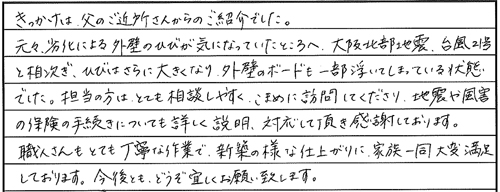 きっかけは、父のご近所さんからのご紹介でした。
元々、劣化による外壁のひびが気になっていたところへ、大阪北部地震、台風21号
と相次ぎ、ひびはさらに大きくなり、外壁のボードも一部浮いてしまっている状態
でした。担当の方は、とても相談しやすく、こまめに訪問してくださり、地震や風害
の保険の手続きについても詳しく説明、対応して頂き感謝しております。
職人さんもとても丁寧な作業で、新築の様な仕上がりに、家族一同大変満足
しております。今後とも、どうぞ宜しくお願い致します。